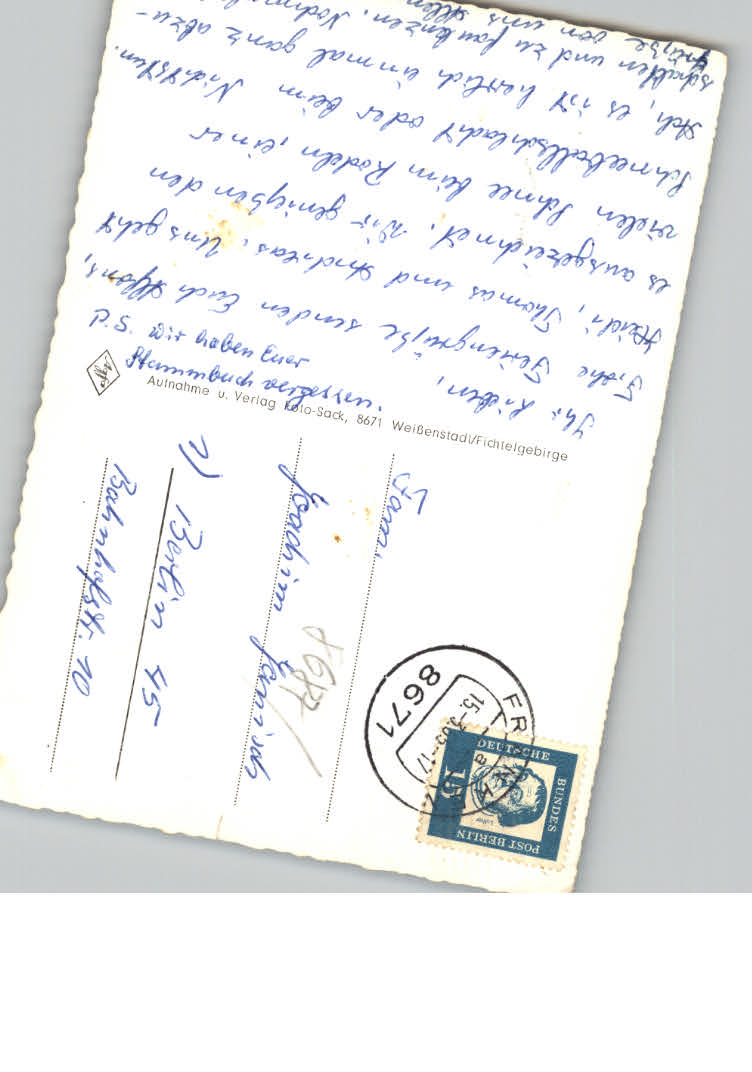 Ihr Lieben,
Frohe Feriengrüße senden Euch Alfons,
Heidi, Thomas und Andreas. Uns geht
es ausgezeichnet. Wir genießen den
vielen Schnee beim Rodeln, einer
Schneeballschlacht oder beim Nichtstun.
Ach, es ist herrlich einmal ganz abzu-
schalten und zu faulenzen.
Grüße von uns Allen
P.S. Wir haben Euer
Stammbuch
Agfa
Aufnahme u. Verlag Foto-Sack, 8671 Weißenstadt/Fichtelgebirge
Fam.
Joachim Janisch
1) Berlin 45
Bahnhofstr. 10
8671
15.-3.65-17
a
DEUTSCHE
BUNDES
POST BERLIN
15
Luther